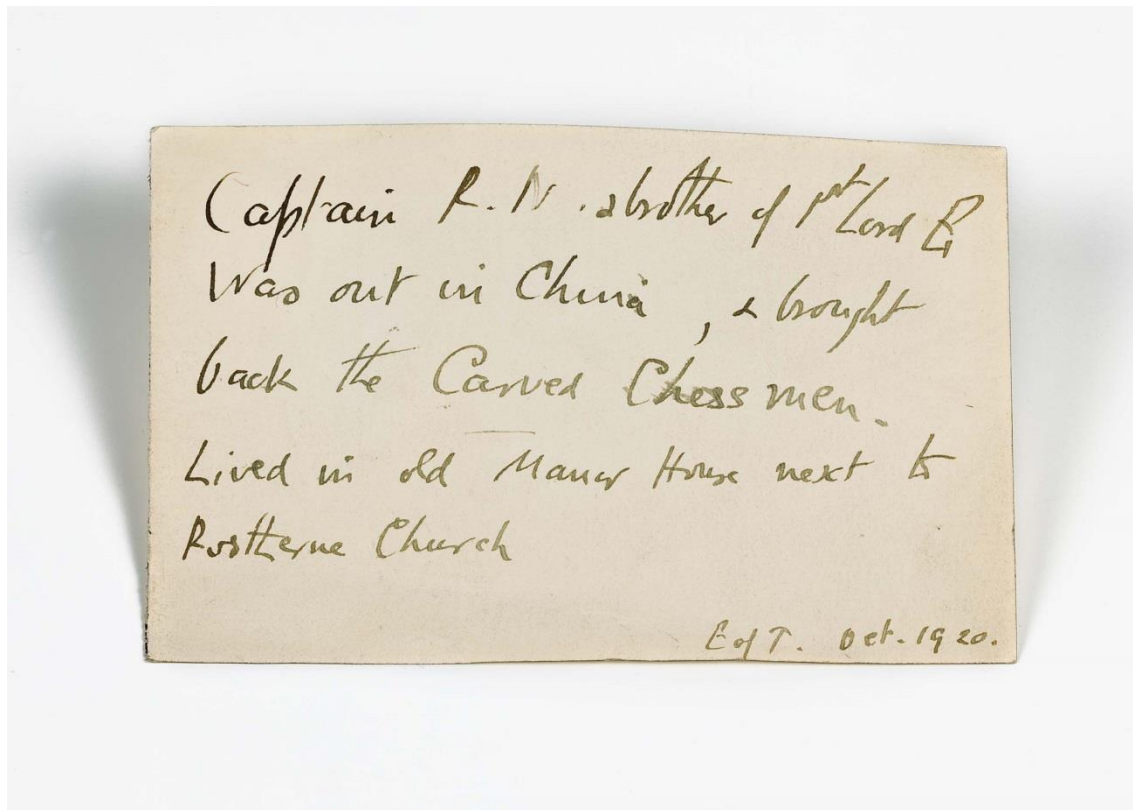 Captain R.N. & brother of 1st Lord E
Was out in China, & brought
back the Carved Chessmen.
Lived in old Manor House next to
Rostherne Church
E of T. Oct. 1920.